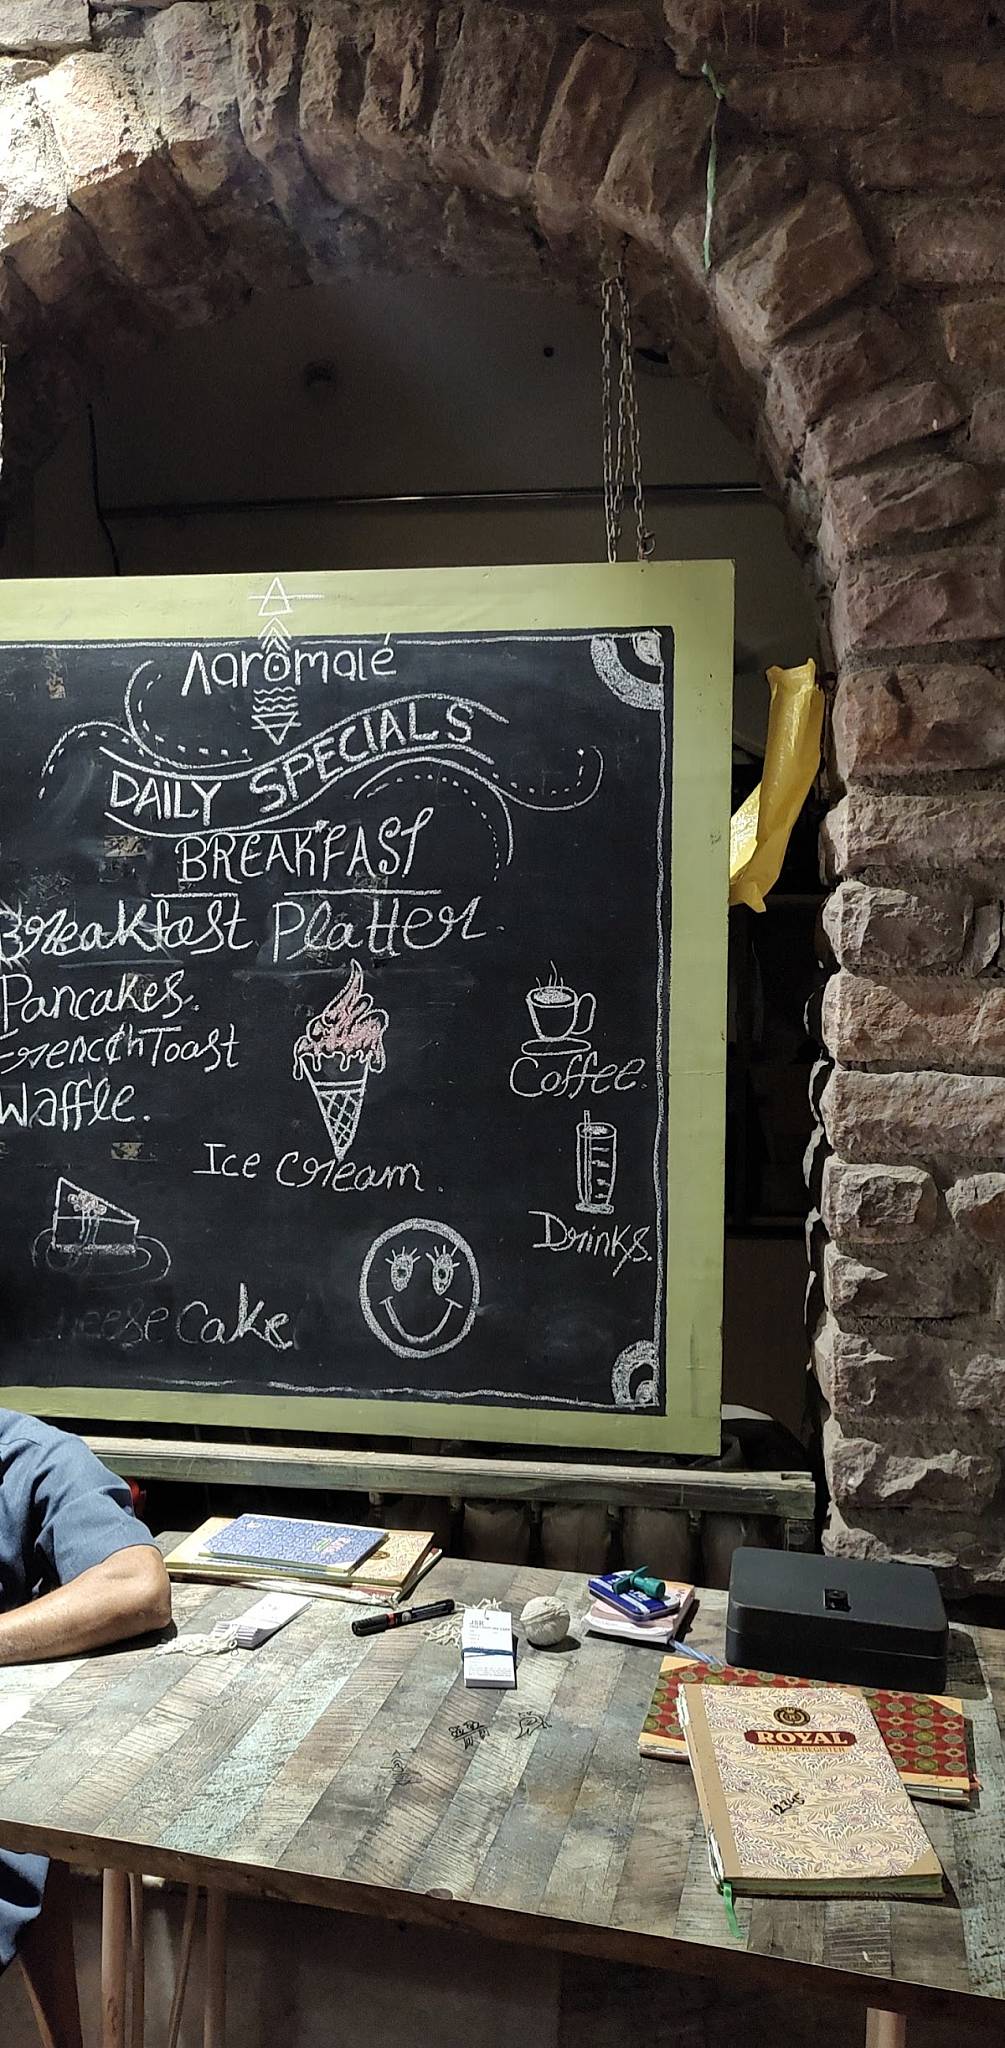 Aaromalé
DAILY SPECIALS
BREAKFAST
Breakfast Platter.
Pancakes.
French Toast
Waffle.
Coffee.
Ice cream.
Drinks.
cheese cake
JSR
ROYAL
DELUXE REGISTER
12345